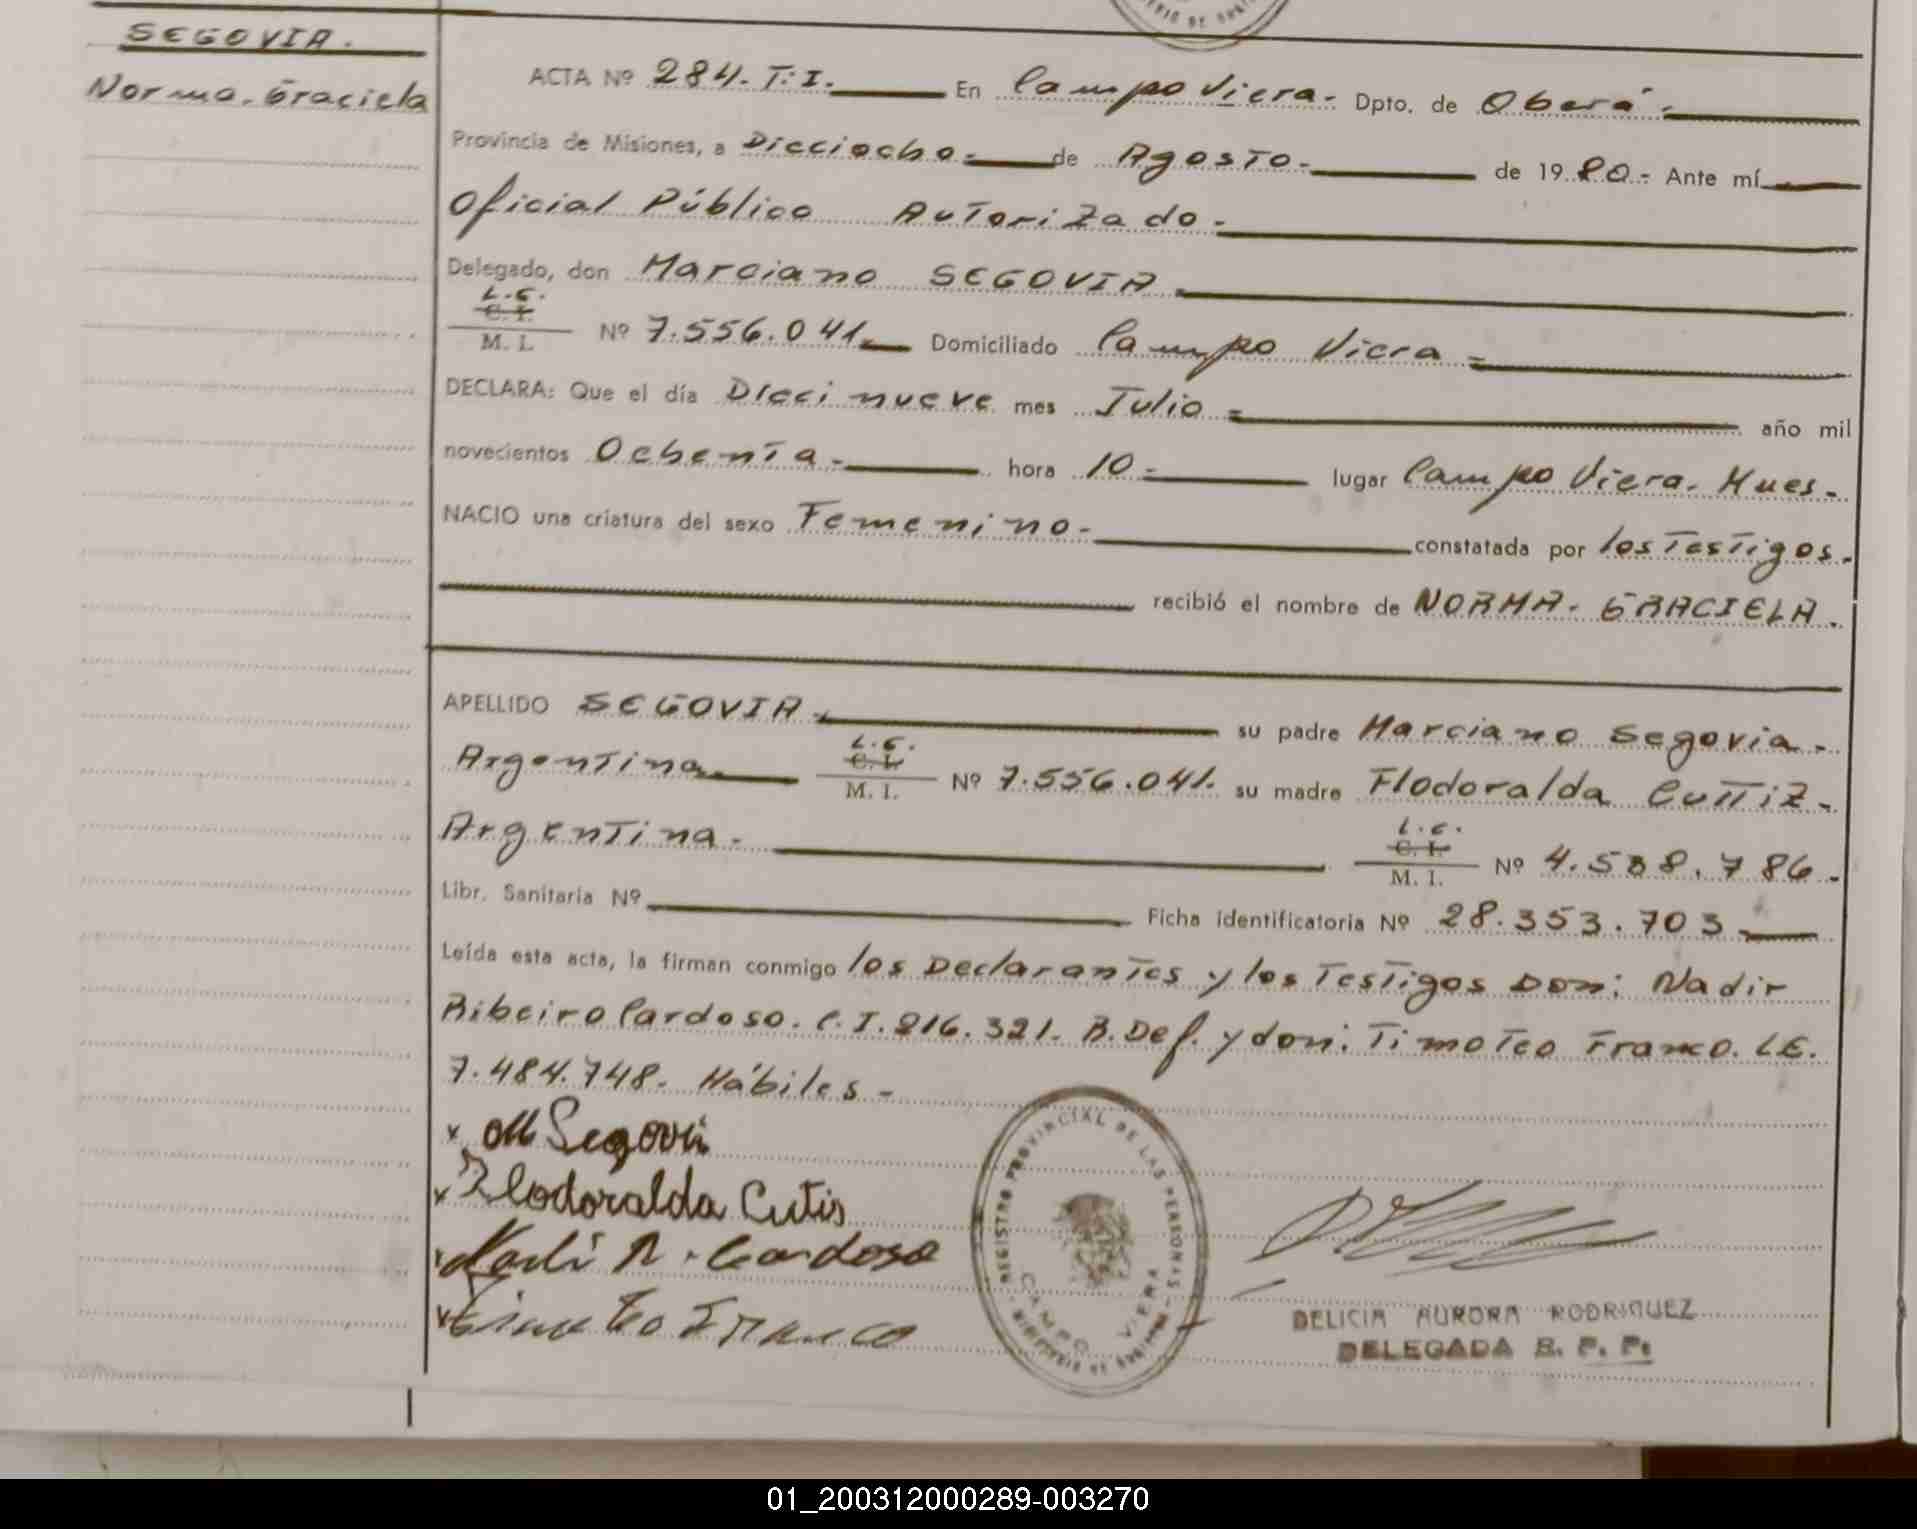 SEGOVIA.
Norma. Graciela
ACTA Nº 284. T: I. En Campo Viera. Dpto. de Oberá.
Provincia de Misiones, a Dieciocho. de Agosto. de 1980. Ante mí
Oficial Público Autorizado.
Delegado, don Marciano SEGOVIA.
L.E.
C. I.
M. I. Nº 7.556.041. Domiciliado Campo Viera
DECLARA: Que el día Diecinueve mes Julio año mil
novecientos Ochenta. hora 10 lugar Campo Viera. Mnes.
NACIO una criatura del sexo Femenino. constatada por los Testigos.
recibió el nombre de NORMA. GRACIELA.
APELLIDO SEGOVIA. su padre Marciano Segovia.
L.E.
C. I.
Argentina M. I. Nº 7.556.041. su madre Flodoralda Cuttiz.
L.C.
C. I.
Argentina. M. I. Nº 4.538.786.
Libr. Sanitaria Nº Ficha identificatoria Nº 28.353.703
Leída esta acta, la firman conmigo los Declarantes y los Testigos Don: Nadir
Ribeiro Cardoso. C.I. 216.321. B. Def. y don: Timoteo Franco. LE.
7.484.748. Hábiles -
x M Segovia
x Flodoralda Cutis
Cardoso
x Timoteo Franco
REGISTRO PROVINCIAL DE LAS PERSONAS
CAMPO VIERA
DELICIA AURORA RODRIGUEZ
DELEGADA R. P. P.
01_200312000289-003270